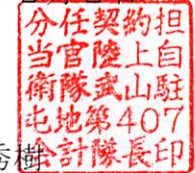 分任契約担
当官陸上自
衛隊武山駐
屯地第407
会計隊長印
秀樹